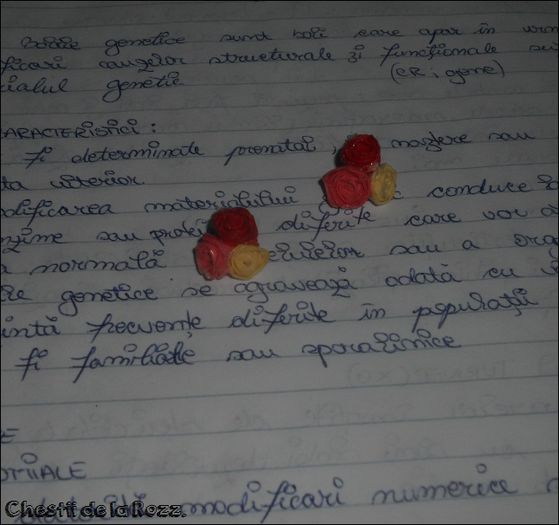 Bolile genetice sunt boli care apar în urm
ficari cauzelor structurale și funcționale
ialul genetic (CR; gene)
ARACTERISTICI:
fi determinate prenatal, naștere sau
ta ulterior
odificarea materialului conduce
nzime sau diferite care vor
a normală sau a
genetice se agravează odată cu
intă frecvențe diferite în populații
fi familiale sau sporadice
E
OȚIALE
modificari numerice
Chestii de la Rozz.